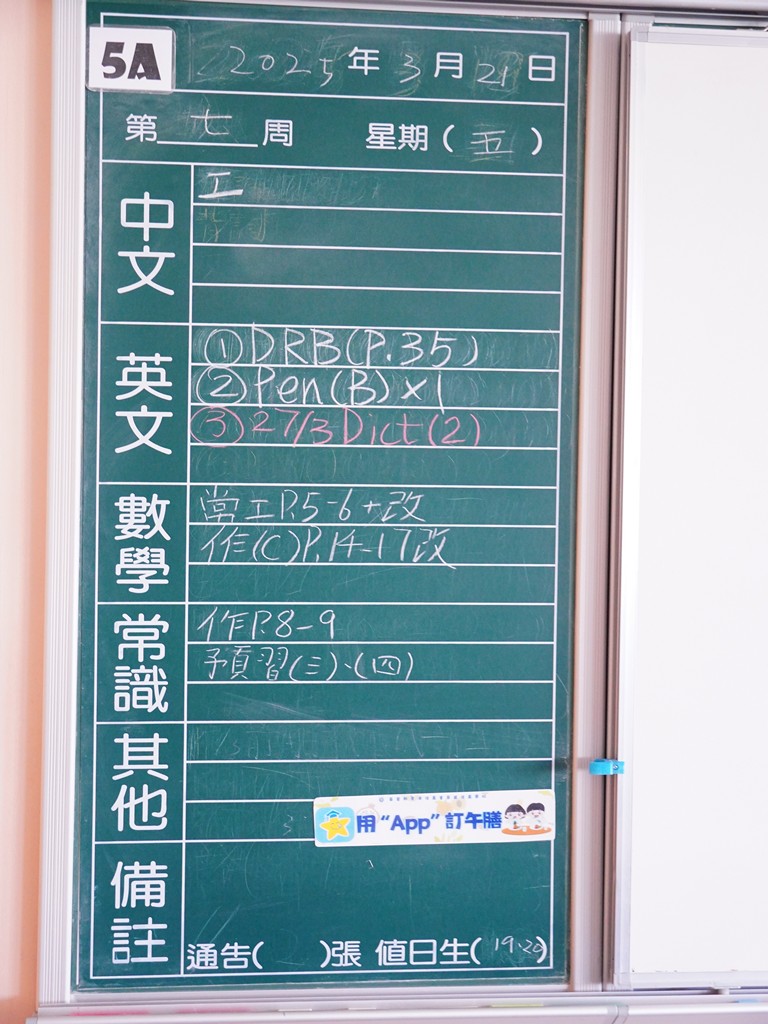 5A
2025年3月21日
第七周 星期(五)
中文
工
英文
①DRB(P.35)
②Pen(B)×1
③27/3 Dict(2)
數學
常工P.5-6+改
作(C)P.14-17改
常識
作P.8-9
預習(三)、(四)
其他
用“App”訂午膳
備註
通告( )張 值日生(19.20)